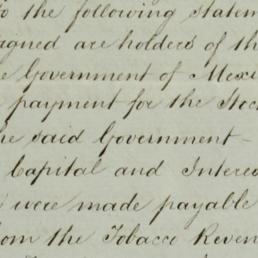 to the following statem
signed are holders of th
e Government of Mexi
payment for the Stoc
he said Government -
Capital and Interes
were made payable
rom the Tobacco Reven